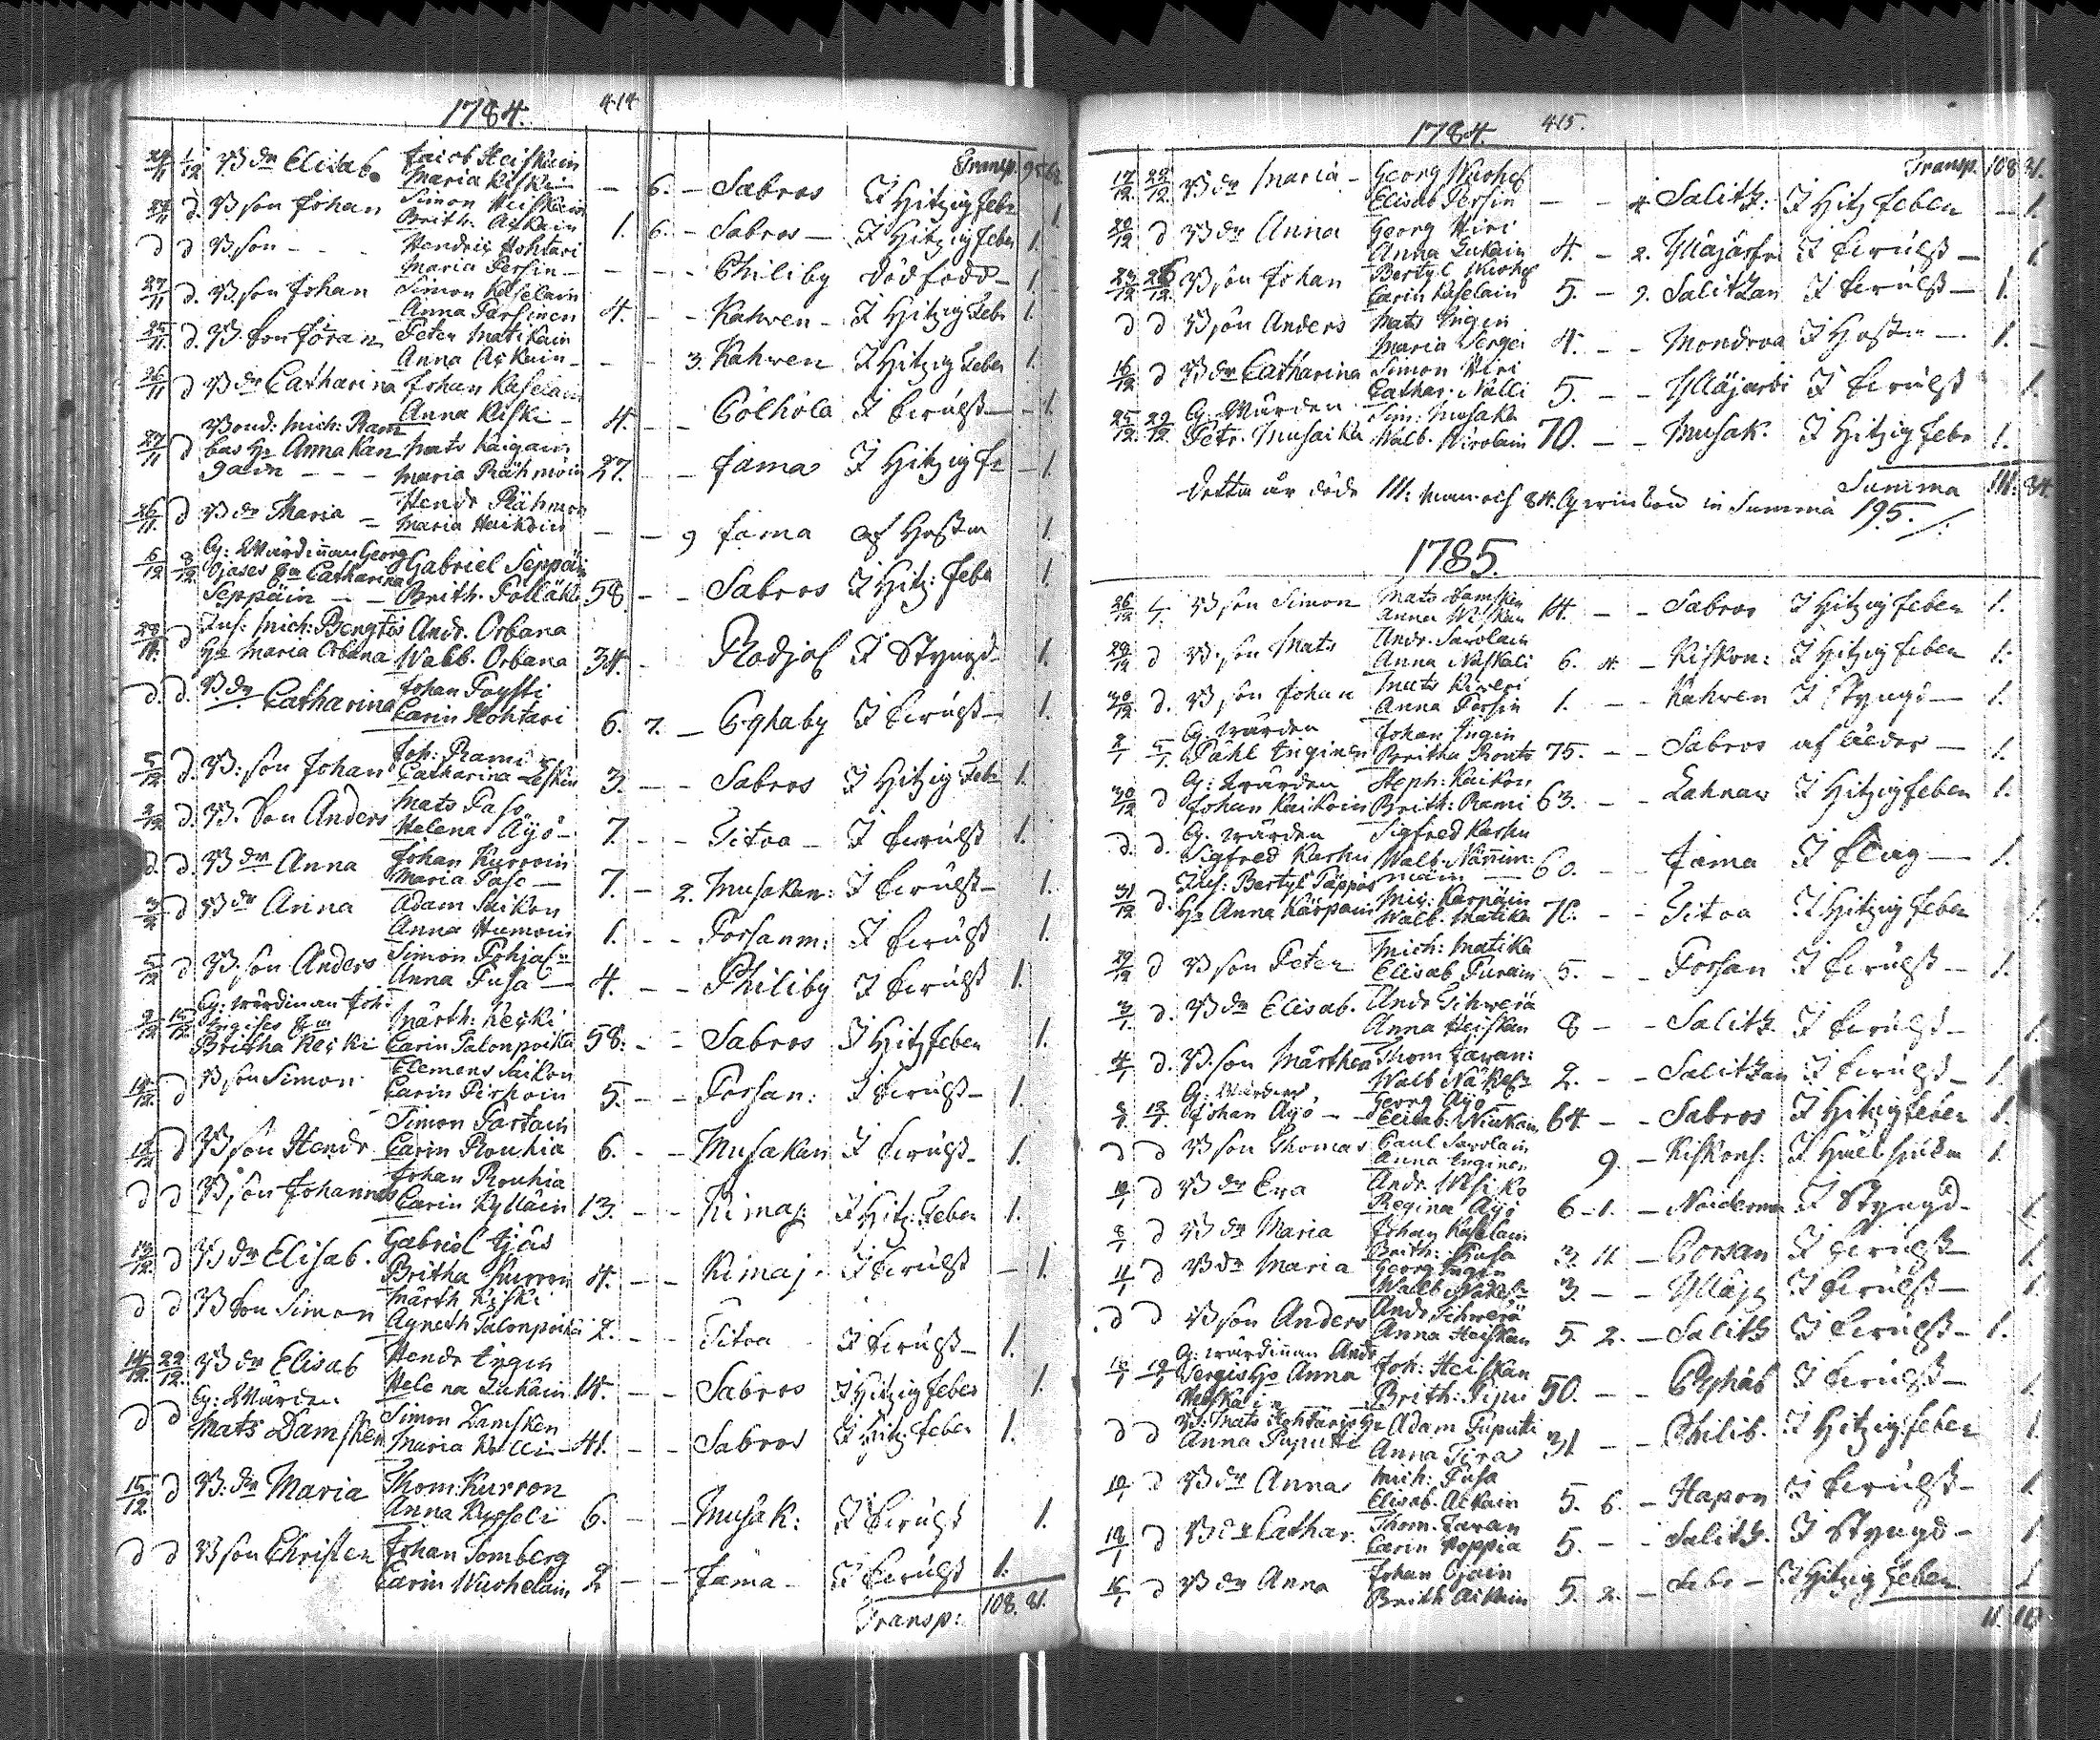 1784. 414
Transp. 95.
24/11 1/12 B dr Elisab. Jacob Heiskain
Maria Kiski - 6. - Sabros I Hitzig febr 1.
24/11 d. B son Johan Simon Heiskain
Brith. Askain 1. 6. - Sabros - I Hitzig feber 1.
d d B son - - Hendric Kohtari
Maria Persin - - - - Philiby dödfödd - 1.
27/11 d. B son Johan Simon Kaselain
Anna Parssinen 4. - - Kahven - I Hitzig Febr 1.
25/11 d. B. Son Jöran Peter Matikain
Anna Askain - - - 3. Kahwen I Hitzig Feber 1.
26/11 d B dr Catharina Johan Kaselain
Anna Kiski - 4. - - Cölhola I bröst - 1.
Bond: Mich: Ram
27/11 d bas Ha Anna Kan Mats Kaigain
gain - - - Maria Rähmöin 27. - - Jama I Hitzig fe - 1.
26/11 d B dr Maria - Hendr Rähmön
Maria Haikoin - - 9 Jama af Hostn 1.
G: Wärdinnan Georg
6/12 8/12 Ojases Ha Catharina Gabriel Seppäin
Seppäin - - Brith. Polläkk 58 - - Sabros I Hitz: febr 1.
Inh: Mich: Bengtis Andr. Orbana
28/11 d Ha Maria Orbana Walb. Orbana 34. - Rodjas I Styngd - 1.
d. d. B dr Catharina Johan Toysti
Carin Kohtari 6. 7. - Cghaby I bröst - 1.
5/12 d. B: son Johan Joh: Rami
Catharina Leskin 3. - - Sabros I Hitzig Febr 1.
3/12 d. B. Son Anders Mats Paso
Helena Äyö - 7. - - Titoa - I bröst 1.
d. d. B dr Anna Johan Kurroin
Maria Paso - 7. - 2. Musakan: I bröst - 1.
3/12 d B dr Anna Adam Saikon
Anna Hamoin 1. - - Porsanm: I bröst 1.
5/12 d B. son Anders Simon Pohjas
Anna Pusa - 4. - - Philiby I bröst 1.
G: wärdinnan Joh.
9/12 15/12 Ingises Ha Märth: Keski
Britha Keski Carin Talonpoika 58. - - Sabros I Hitz feber 1.
14/12 d B son Simon Clemens Saikon
Carin Pirhoin 5. - - Porsan: I bröst - 1.
14/12 d B son Hendr Simon Partain
Carin Rouhia 6. - - Musakan I bröst - 1.
d d B son Johannes Johan Rouhia
Carin Kylläin 13. - - Kimaj: I Hitz: Feber 1.
13/12 d B dr Elisab. Gabriel Ojäs
Britha Kurron 4. - - Kimaj. I bröst - 1.
d d B Son Simon Märth Kiski
Agneth Talonpoika 2. - - Titoa I bröst - 1.
14/12 22/12 B dr Elisab Hendr Ingin
Helena Lukain 14. - - Sabros I Hitzig feber 1.
d d G: Wärden
Mats Damsken Simon Damsken
Maria Kelli - 41. - - Sabros I Hitz: feber 1.
15/12 d B: dr Maria Thom: Kurron
Anna Kysseli 6. - - Musak: I bröst 1.
d d B son Christer Johan Tomberg
Carin Wuohelain 2 - - Jama - I bröst 1.
Transp: 108. 81.
1784. 415.
Transp. 108. 81.
17/12 22/12 B dr Maria - Georg Wuohel
Elisab Persin - - 4 Salitz: I Hitz feber - 1.
20/12 d B dr Anna Georg Kiri
Anna Lukain 4. - 2. Ylläjärfvi I bröst - 1
24/12 26/12 B son Johan Bertyl Wuohel
Carin Kaselain 5. - 2. Salitzan I bröst - 1.
d d B son Anders Mats Ingin
Maria Vergei 4. - - Mondroa I Hostn - 1.
16/12 d B dr Catharina Simon Kiri
Cathar: Nalli 5. - - Ylläjärbi I bröst 1.
25/12 29/12 G: Wärden Sim: Musaka
Petr. Musaika Walb. Kirolain 70. - - Musak. I Hitzig febr 1.
Summa 111. 84.
Detta år döde 111. Man och 84. Qwinkön in Summa 195. /.
1785.
26/12 1/1 B son Simon Mats Damsken
Anna Wiskan 14. - - Sabros I Hitzig feber 1.
29/12 d B. son Mats Andr. Savolain
Anna Naskali 6. 4. - Kiskon: I Hitzig feber 1.
30/12 d. B son Johan Mats Kiveri
Anna Persin 1. - - Kahwen I Styngd - 1.
2/1 5/1 G. wärden
Påhl Inginen Johan Ingin
Britha Ronts 75. - - Sabros af ålder - 1.
30/12 d G: wärden
Johan Kaikoin Steph: Kaikon
Brith: Rami 63. - - Lahnav I Hitzig feber 1.
d. d. G. wärden
Sigfred Karhu Sigfred Karhu
Walb. Nännimäin - 60. - - Jama I flug - 1.
31/12 d. Inh: Bertyl Päppös
Ha Anna Kärpäin Mich: Karpäin
Walb. Matika 70. - - Titoa I Hitzig feber 1.
29/12 d B son Peter Mich: Matika
Elisab Purain 5. - - Porsan I bröst - 1.
3/1 d. B dr Elisab. Andr Tihwerä
Anna Heiskan 8 - - Salitz I bröst - 1.
4/1 d. B. son Märthen Thom Javan:
Walb Näkes 2. - - Salitzan I bröst - 1.
8/1 12/1 G. Wärden
Johan Äyö - - Georg Äyö
Elisab: Niukan 64 - - Sabros I Hitzig feber 1.
d d B son Thomas Paul Savolain
Anna Inginen 9. - Kiskons: I Huelsjukdn 1.
10/1 d B dr Eva Andr. Wisiko
Regina Äyö 6 - 1. - Noiderma I Styngd - 1.
8/1 d B dr Maria Johan Kaselain
Brith: Husa 3. 11 - Porsan I bröst - 1.
11/1 d B dr Maria Georg Ingin
Walb Näkes 3. - - Ylläjs I bröst - 1.
d d B son Anders Andr Tihwerä
Anna Heiskan 5. 2. - Salitz I bröst - 1.
18/1 19/1 G: wärdinnan Andr
Vergis Ha Anna
Heiskain Joh: Heiskan
Brith: Pipu 50. - - Cghab I bröst - 1.
d d Bd: Mats Kohtaris Ha
Anna Puputti Adam Puputti
Anna Tira 31 - - Philib. I Hitzig feber 1.
10/1 d B dr Anna Mich: Pusa
Elisab. Askain 5. 6. - Hapon I bröst - 1.
18/1 d B dr Cathar. Thom. Javan
Carin Poppia 5. - - Salitz. I Styngd - 1.
16/1 d B dr Anna Johan Ojain
Brith Aikain 5. 2. - Sabr - I Hitzig feber 1
11. 10.